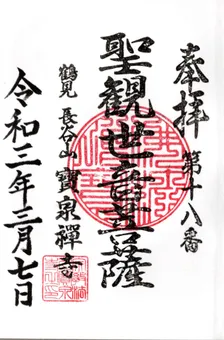 奉拝
第十八番
聖観世音菩薩
鶴見 長谷山 寳泉禪寺
令和三年三月七日